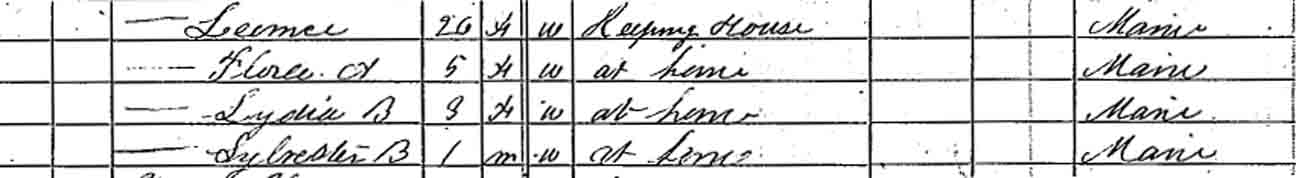 — Leomce 26 F W Keeping House Maine
— Flora A 5 F W at home Maine
— Lydia B 3 F W at home Maine
— Sylvester B 1 m W at home Maine